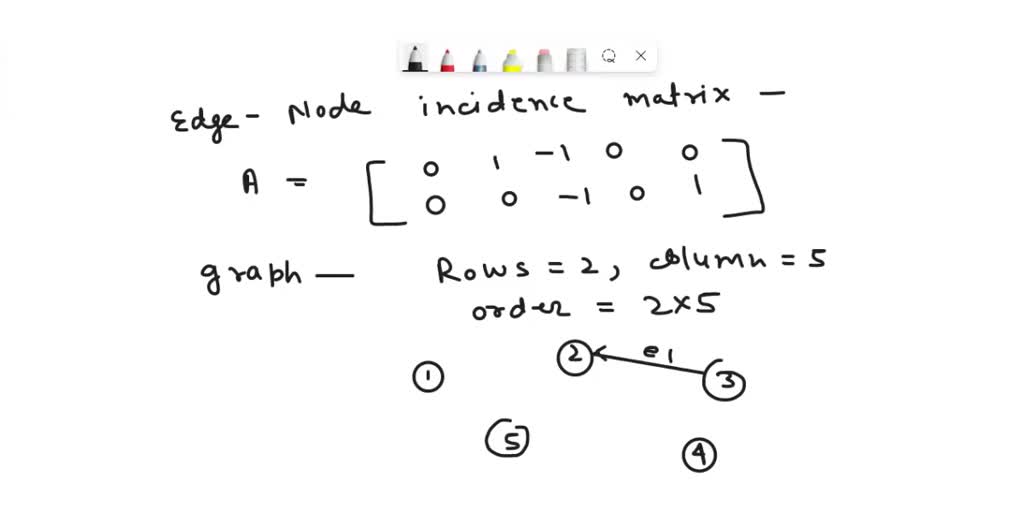 Edge - Node incidence matrix -
A = [ 0 1 -1 0 0
0 0 -1 0 1 ]
graph — Rows = 2, column = 5
order = 2×5
2 e1
1 3
5 4